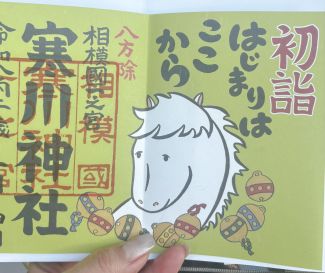 初詣
はじまりは
ここ
から
八方除
相模國一之宮
寒川神社
相模國